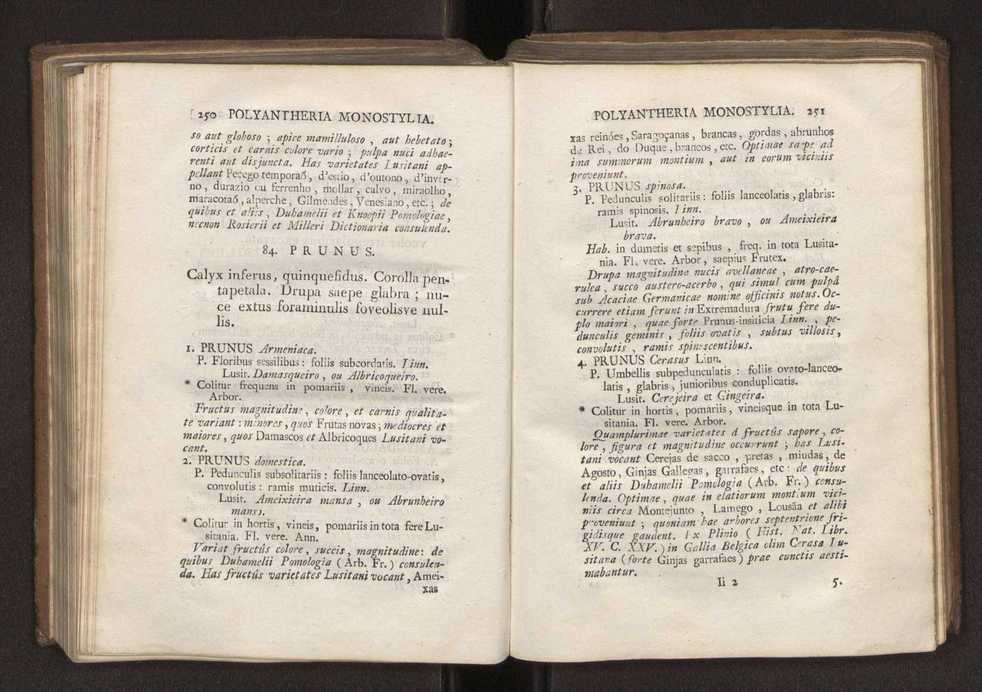 250 POLYANTHERIA MONOSTYLIA.
so aut globoso ; apice mamilluloso , aut hebetato ;
corticis et carnis colore vario ; pulpa nuci adhae-
renti aut disjuncta. Has varietates Lusitani ap-
pellant Pecego temporaõ, d'estio, d'outono, d'inver-
no, durazio ou ferrenho, mollar, calvo, miraolho,
maracotaõ, alperche, Gilmendes, Venesiano, etc. ; de
quibus et aliis , Duhamelii et Knoopii Pomologiae ,
necnon Rosierii et Milleri Dictionaria consulenda.
84. PRUNUS.
Calyx inferus, quinquefidus. Corolla pen-
tapetala. Drupa saepe glabra ; nu-
ce extus foraminulis foveolisve nul-
lis.
1. PRUNUS Armeniaca.
P. Floribus sessilibus : foliis subcordatis. Linn.
Lusit. Damasqueiro , ou Albricoqueiro.
* Colitur frequens in pomariis , vineis. Fl. vere.
Arbor.
Fructus magnitudine , colore , et carnis qualita-
te variant : minores , quos Frutas novas ; mediocres et
maiores , quos Damascos et Albricoques Lusitani vo-
cant.
2. PRUNUS domestica.
P. Pedunculis subsolitariis : foliis lanceolato-ovatis,
convolutis : ramis muticis. Linn.
Lusit. Ameixieira mansa , ou Abrunheiro
manso.
* Colitur in hortis, vineis, pomariis in tota fere Lu-
sitania. Fl. vere. Ann.
Variat fructûs colore , succis , magnitudine : de
quibus Duhamelii Pomologia ( Arb. Fr. ) consulen-
da. Has fructûs varietates Lusitani vocant , Amei-
xas
POLYANTHERIA MONOSTYLIA. 251
xas reinóes, Saragoçanas, brancas, gordas, abrunhos
de Rei, do Duque, brancos, etc. Optimae saepe ad
ima summorum montium , aut in eorum viciniis
proveniunt.
3. PRUNUS spinosa.
P. Pedunculis solitariis : foliis lanceolatis, glabris :
ramis spinosis. Linn.
Lusit. Abrunheiro bravo , ou Ameixieira
brava.
Hab. in dumetis et sepibus , freq. in tota Lusita-
nia. Fl. vere. Arbor, saepius Frutex.
Drupa magnitudine nucis avellaneae , atro-cae-
rulea , succo austero-acerbo , qui simul cum pulpâ
sub Acaciae Germanicae nomine officinis notus. Oc-
currere etiam ferunt in Extremadura frutu fere du-
plo maiori , quae forte Prunus-insiticia Linn. , pe-
dunculis geminis , foliis ovatis , subtus villosis ,
convolutis , ramis spinescentibus.
4. PRUNUS Cerasus Linn.
P. Umbellis subpedunculatis : foliis ovato-lanceo-
latis , glabris , junioribus conduplicatis.
Lusit. Cerejeira et Gingeira.
* Colitur in hortis, pomariis, vineisque in tota Lu-
sitania. Fl. vere. Arbor.
Quamplurimae varietates à fructûs sapore , co-
lore , figura et magnitudine occurrunt ; has Lusi-
tani vocant Cerejas de sacco , pretas , miudas, de
Agosto, Ginjas Gallegas, garrafaes, etc : de quibus
et aliis Duhamelii Pomologia ( Arb. Fr. ) consu-
lenda. Optimae , quae in elatiorum montium vici-
niis circa Montejunto , Lamego , Lousãa et alibi
proveniunt ; quoniam hae arbores septentrione fri-
gidisque gaudent. Ex Plinio ( Hist. Nat. Libr.
XV. C. XXV. ) in Gallia Belgica olim Cerasa Lu-
sitana ( forte Ginjas garrafaes ) prae cunctis aesti-
mabantur.
Ii 2 5.